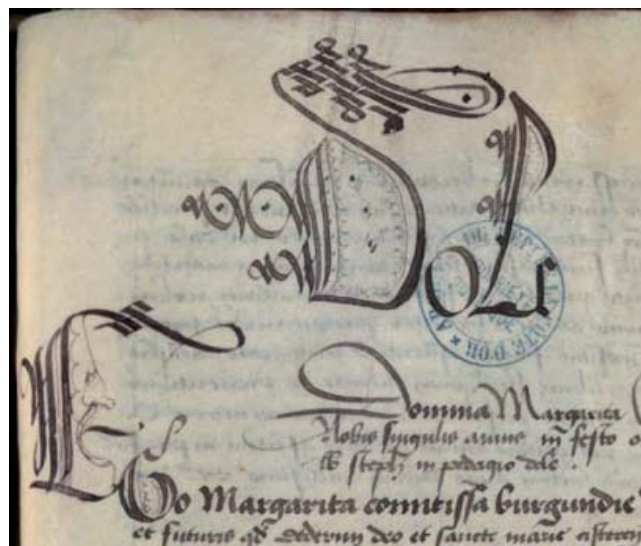 Dole
Domina Margarita
Nobis singulis annis in festo
steph in pedagio dole.
Ego Margarita comitissa burgundie
et futuris qd dederim deo et sancte marie cisterc